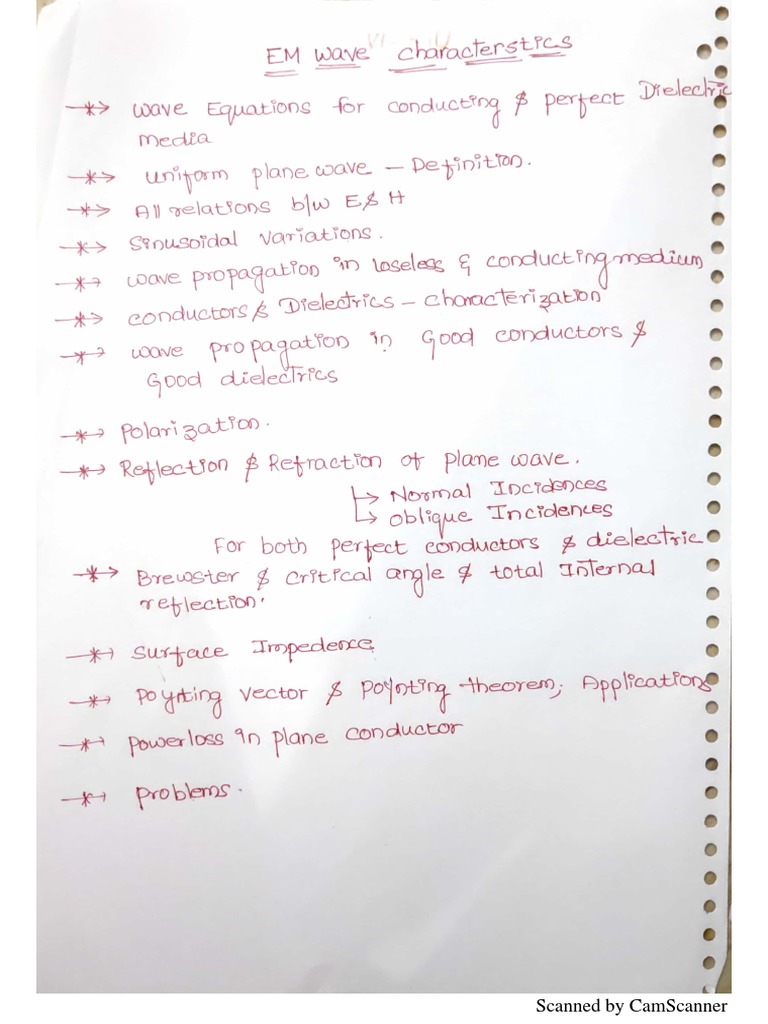 EM wave characterstics
wave Equations for conducting & perfect Dielectric
media
uniform plane wave - Definition.
All relations b/w E & H
Sinusoidal variations.
wave propagation in loseless & conducting medium
conductors & Dielectrics - characterization
wave propagation in Good conductors &
Good dielectrics
polarization.
Reflection & Refraction of plane wave.
Normal Incidences
oblique Incidences
For both perfect conductors & dielectric
Brewster & critical angle & total Internal
reflection.
surface Impedence
Poynting vector & Poynting theorem, Applications
powerloss in plane conductor
problems.
Scanned by CamScanner